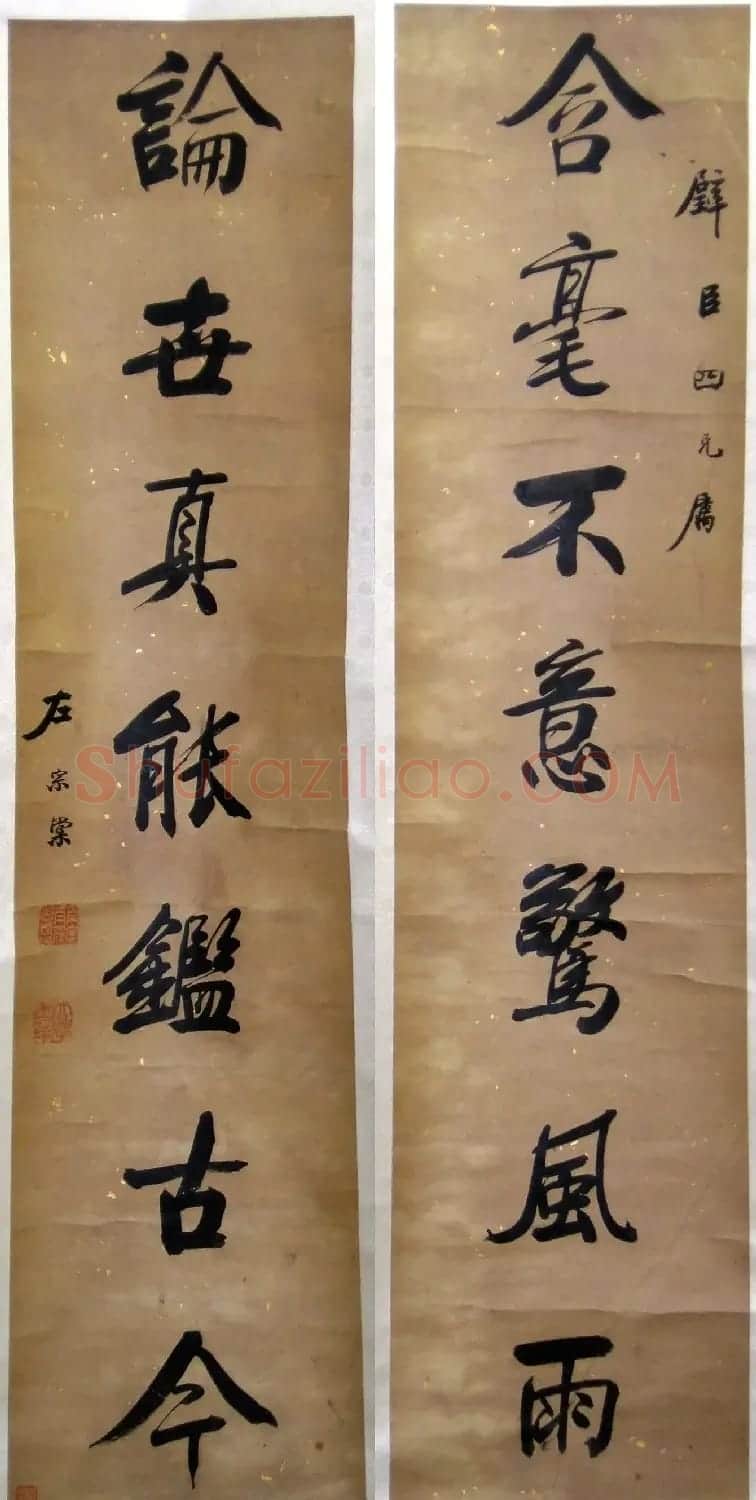 含毫不意驚風雨
璧臣四兄屬
論世真能鑑古今
左宗棠
Shufaziliao.COM